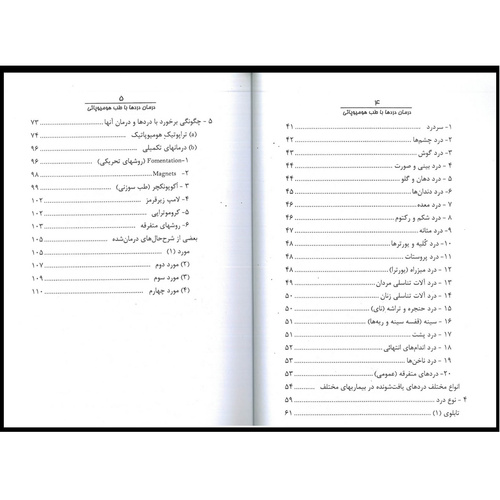 ۴
درمان دردها با طب هومیوپاتی
۱- سردرد ۴۱
۲ - درد چشم‌ها ۴۲
۳ - درد گوش ۴۳
۴ - درد بینی و صورت ۴۴
۵ - درد دهان و گلو ۴۴
۶ - درد دندان‌ها ۴۵
۷ - درد معده ۴۶
۸ - درد شکم و رکتوم ۴۶
۹ - درد مثانه ۴۷
۱۰ - درد کُلیه و یورترها ۴۸
۱۱ - درد پروستات ۴۸
۱۲ - درد میزراه (یورترا) ۴۸
۱۳ - درد آلات تناسلی مردان ۴۹
۱۴ - درد آلات تناسلی زنان ۵۰
۱۵ - درد حنجره و تراشه (نای) ۵۰
۱۶ - سینه (قفسه سینه و ریه‌ها) ۵۱
۱۷ - درد پشت ۵۱
۱۸ - درد اندام‌های انتهائی ۵۲
۱۹ - درد ناخن‌ها ۵۳
۲۰- دردهای متفرقه (عمومی) ۵۳
انواع مختلف دردهای یافت‌شونده در بیماریهای مختلف ۵۴
۴ - نوع درد ۵۹
تابلوی (۱) ۶۱
۵
درمان دردها با طب هومیوپاتی
۵ - چگونگی برخورد با دردها و درمان آنها ۷۳
(a) تراپوتیک هومیوپاتیک ۷۴
(b) درمانهای تکمیلی ۹۶
۱-Fomentation (روشهای تحریکی) ۹۶
۲- Magnets ۹۸
۳ - آکوپونکچر (طب سوزنی) ۹۹
۴ - لامپ زیرقرمز ۱۰۲
۵ - کروموتراپی ۱۰۲
۶ - روشهای متفرقه ۱۰۳
بعضی از شرح‌حال‌های درمان‌شده ۱۰۵
مورد (۱) ۱۰۵
(۲) مورد دوم ۱۰۷
(۳) مورد سوم ۱۰۹
(۴) مورد چهارم ۱۱۰